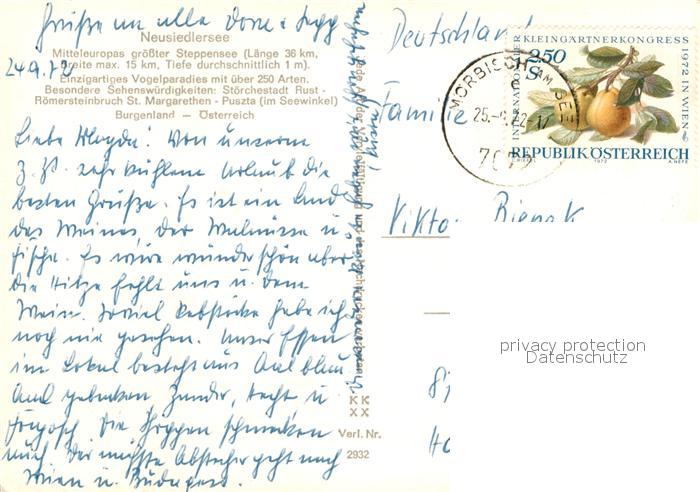 Grüße an alle
Neusiedlersee
Mitteleuropas größter Steppensee (Länge 36 km,
Breite max. 15 km, Tiefe durchschnittlich 1 m).
24.9.72
Einzigartiges Vogelparadies mit über 250 Arten.
Besondere Sehenswürdigkeiten: Störchestadt Rust -
Römersteinbruch St. Margarethen - Puszta (im Seewinkel)
Burgenland — Österreich
Liebe Magda! Von unserem
z. Zt. sehr kühlem Urlaub die
besten Grüße. Es ist ein Land
des Weines der Walnüsse u.
Fische. Es wäre wunderschön aber
die Hitze fehlt uns u. dem
Wein. Soviel Rebstöcke habe ich
noch nie gesehen. Unser Essen
im Lokal besteht aus Aal blau
Aal gebacken Zander, Hecht u.
Die schmecken
auch. Der nächste Abstecher geht nach
Wien u. Budapest.
KK
XX
Verl. Nr.
2932
Deutschland
Familie
Viktor
INTERNATIONALER KLEINGÄRTNERKONGRESS 1972 IN WIEN
2.50
S
REPUBLIK ÖSTERREICH
1972
MÖRBISCH AM SEE
25.-9.72-17
7072
privacy protection
Datenschutz